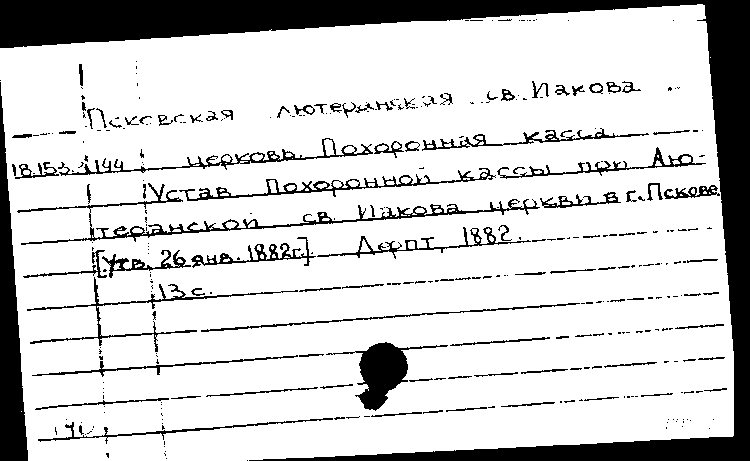 Псковская лютеранская св. Иакова
18.153.3.144 церковь. Похоронная касса.
Устав Похоронной кассы при Лю-
теранской св. Иакова церкви в г. Пскове.
[Утв. 26 янв. 1882г.] Дерпт, 1882.
13 с.